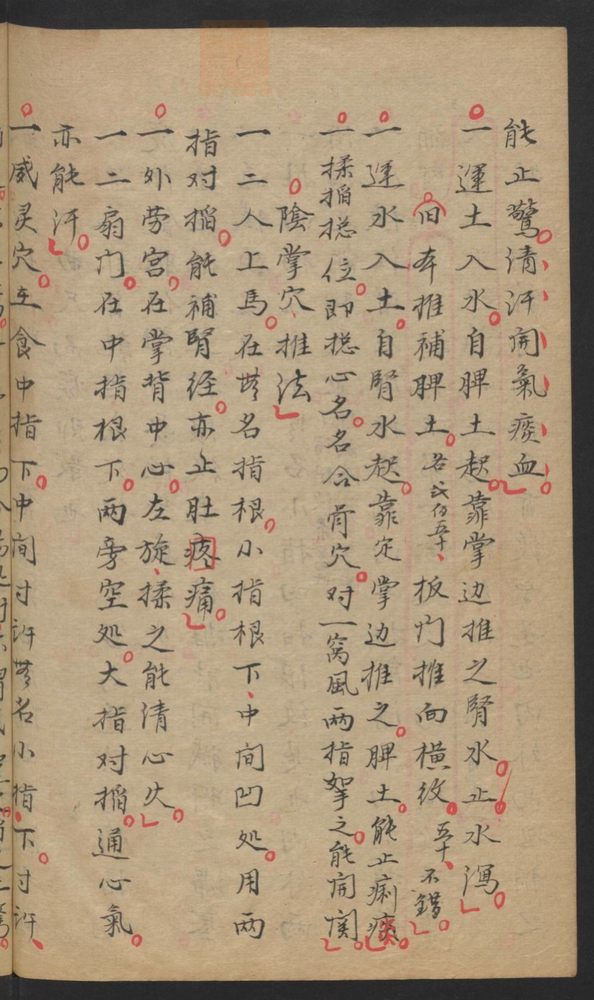 能止驚清汗開氣痰血
一運土入水自脾土起靠掌边推之腎水止水瀉
旧本推補脾土各弍伯五十板门推向横纹五十不錯
一運水入土自腎水起靠定掌边推之脾土能止痢痰
一揉掐捴位即捴心名名合骨穴对一窩風兩指拏之能開関
陰掌穴推法
一二人上馬在無名指根小指根下中间凹处用兩
指对掐能補腎经亦止肚疼痛
一外劳宫在掌背中心左旋揉之能清心火
一二扇门在中指根下兩旁空处大指对掐通心氣
亦能汗
一威灵穴在食中指下中间寸許無名小指下寸許